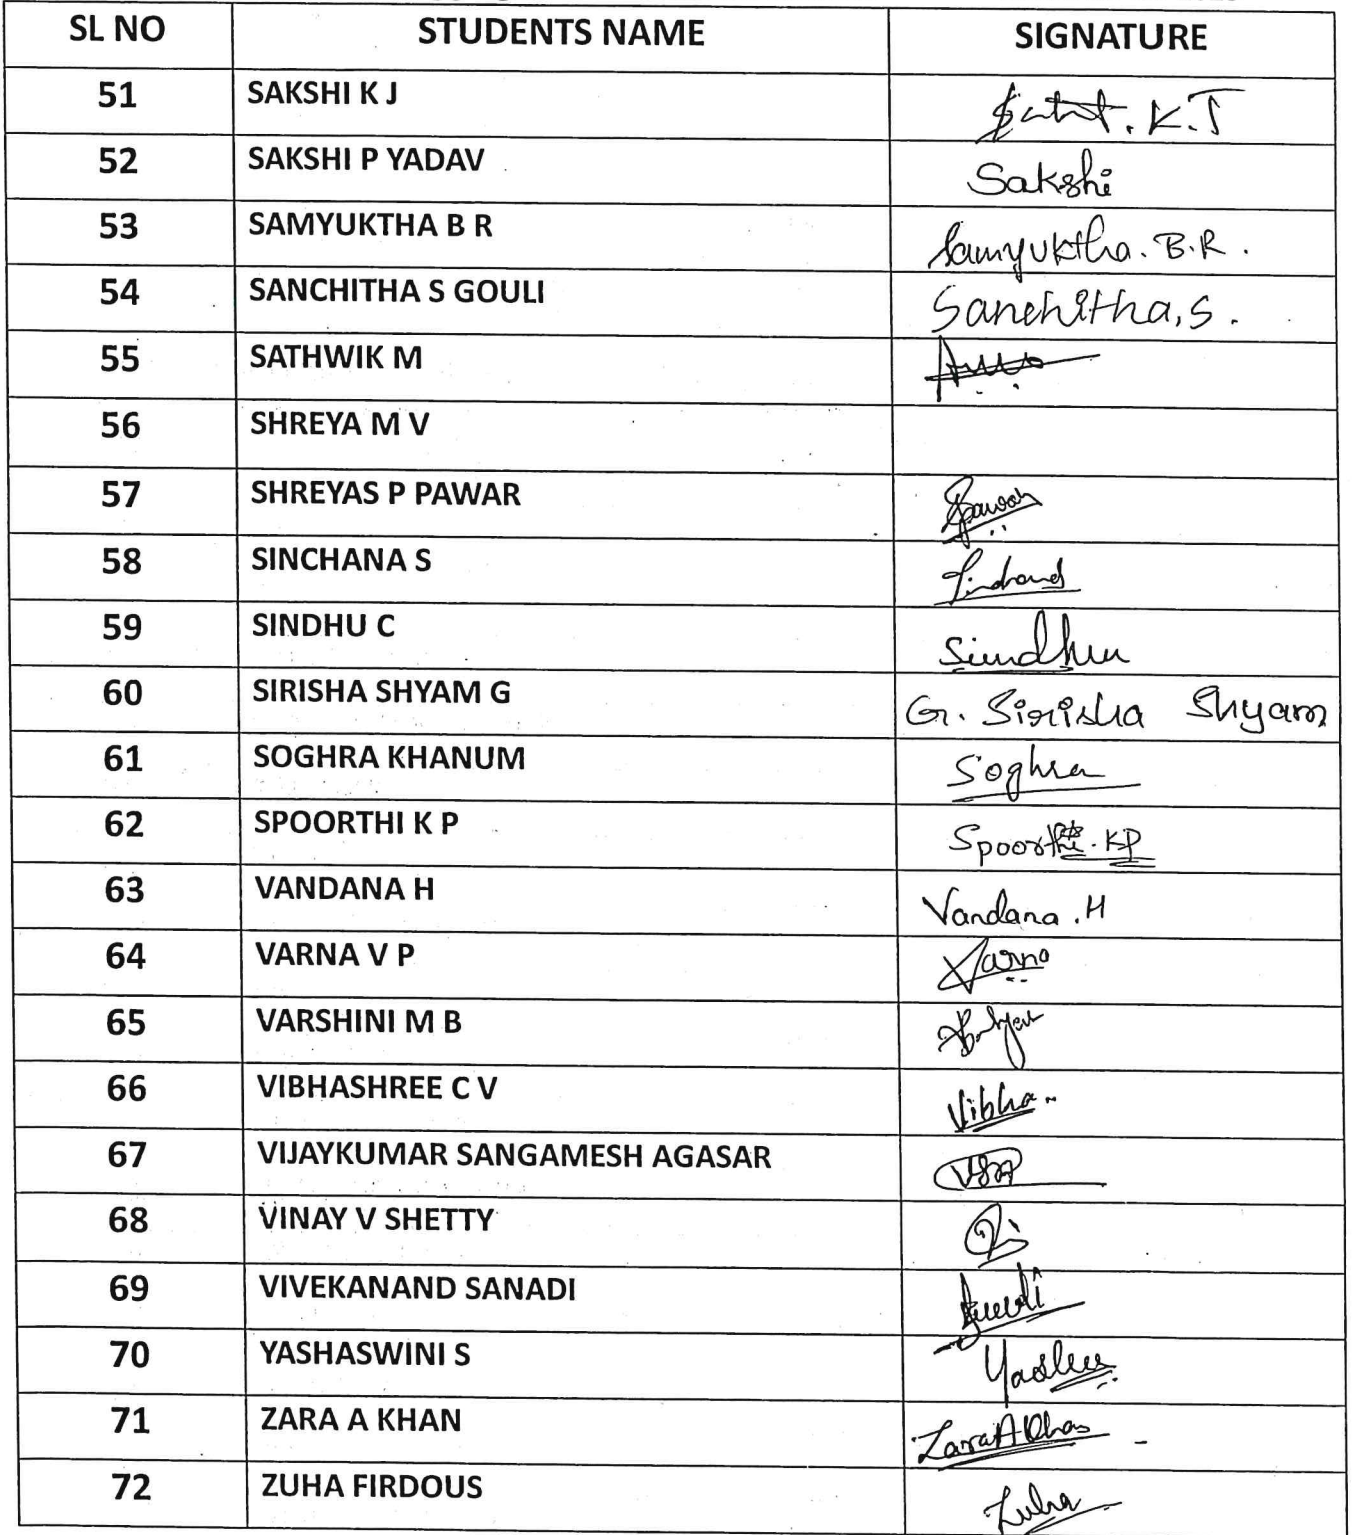 SL NO STUDENTS NAME SIGNATURE
51 SAKSHI K J K.J
52 SAKSHI P YADAV Sakshi
53 SAMYUKTHA B R Samyuktha. B.R.
54 SANCHITHA S GOULI Sanchitha.S.
55 SATHWIK M
56 SHREYA M V
57 SHREYAS P PAWAR
58 SINCHANA S
59 SINDHU C Sindhu
60 SIRISHA SHYAM G G. Sirisha Shyam
61 SOGHRA KHANUM Soghra
62 SPOORTHI K P Spoorthi. KP
63 VANDANA H Vandana .H
64 VARNA V P Varna
65 VARSHINI M B
66 VIBHASHREE C V Vibha
67 VIJAYKUMAR SANGAMESH AGASAR VSA
68 VINAY V SHETTY
69 VIVEKANAND SANADI
70 YASHASWINI S
71 ZARA A KHAN Zara A Khan
72 ZUHA FIRDOUS Zuha